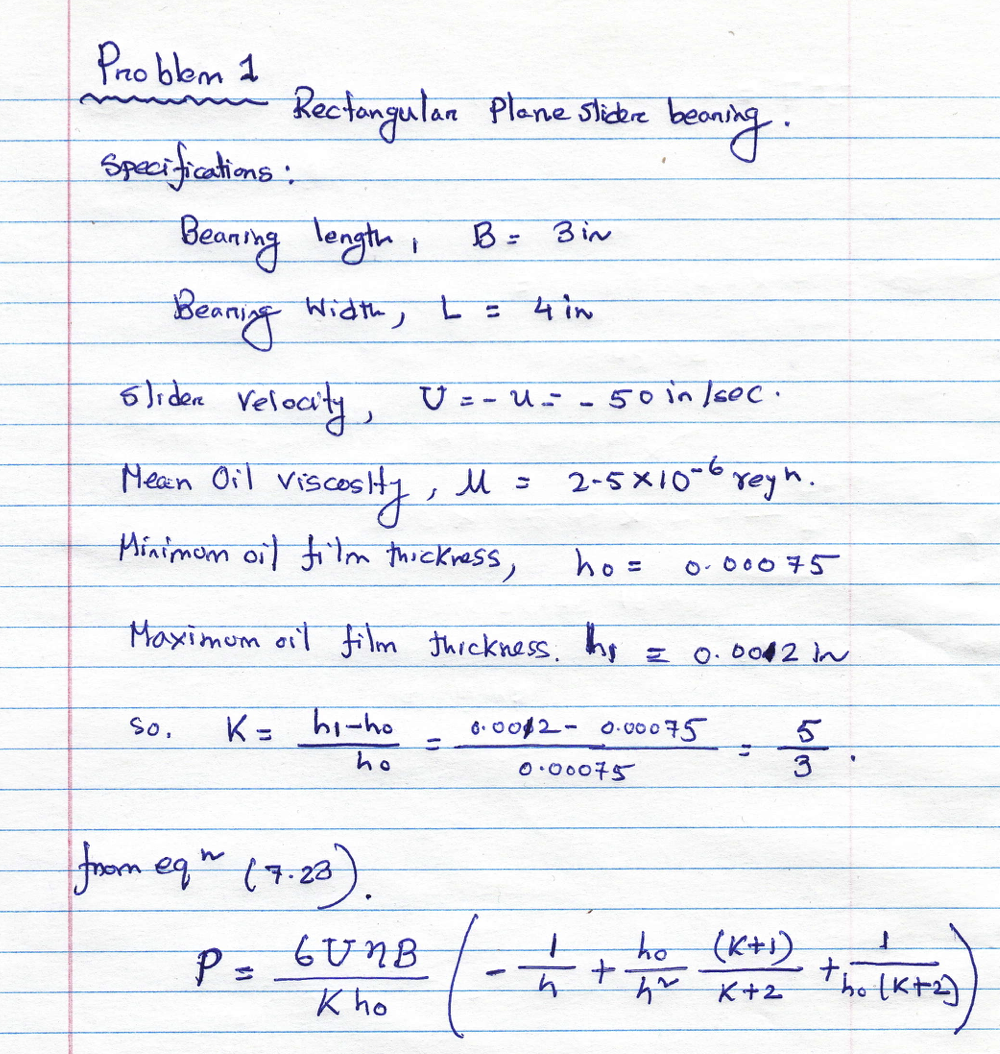 Problem 1
Rectangular Plane slider bearing.
Specifications:
Bearing length, B = 3 in
Bearing Width, L = 4 in
Slider Velocity, U = - u = - 50 in/sec.
Mean Oil Viscosity, μ = 2.5 × 10⁻⁶ reyn.
Minimum oil film thickness, h₀ = 0.00075
Maximum oil film thickness. h₁ = 0.0012 in
So, K = (h₁-h₀)/h₀ = (0.0012 - 0.00075)/0.00075 = 5/3.
from eqⁿ (7.23).
P = 6UηB/(K h₀) ( - 1/h + h₀/h² (K+1)/(K+2) + 1/(h₀(K+2)) )